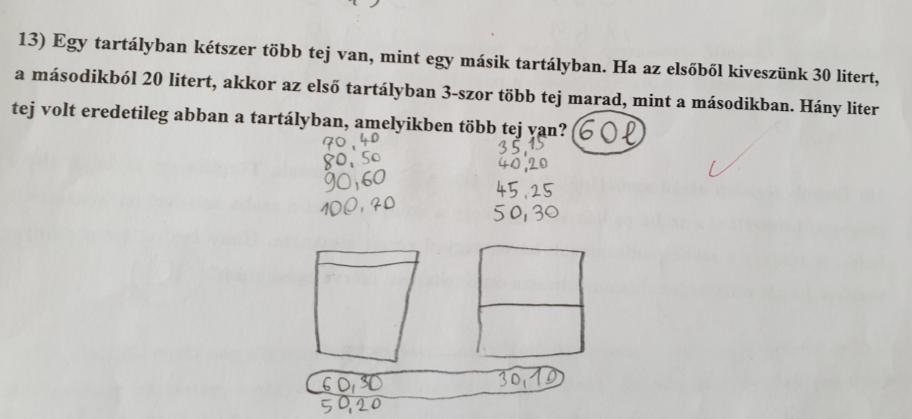 13) Egy tartályban kétszer több tej van, mint egy másik tartályban. Ha az elsőből kiveszünk 30 litert,
a másodikból 20 litert, akkor az első tartályban 3-szor több tej marad, mint a másodikban. Hány liter
tej volt eredetileg abban a tartályban, amelyikben több tej van? 60 l
70,40 35,15
80,50 40,20
90,60 45,25
100,70 50,30
60,30 30,10
50,20